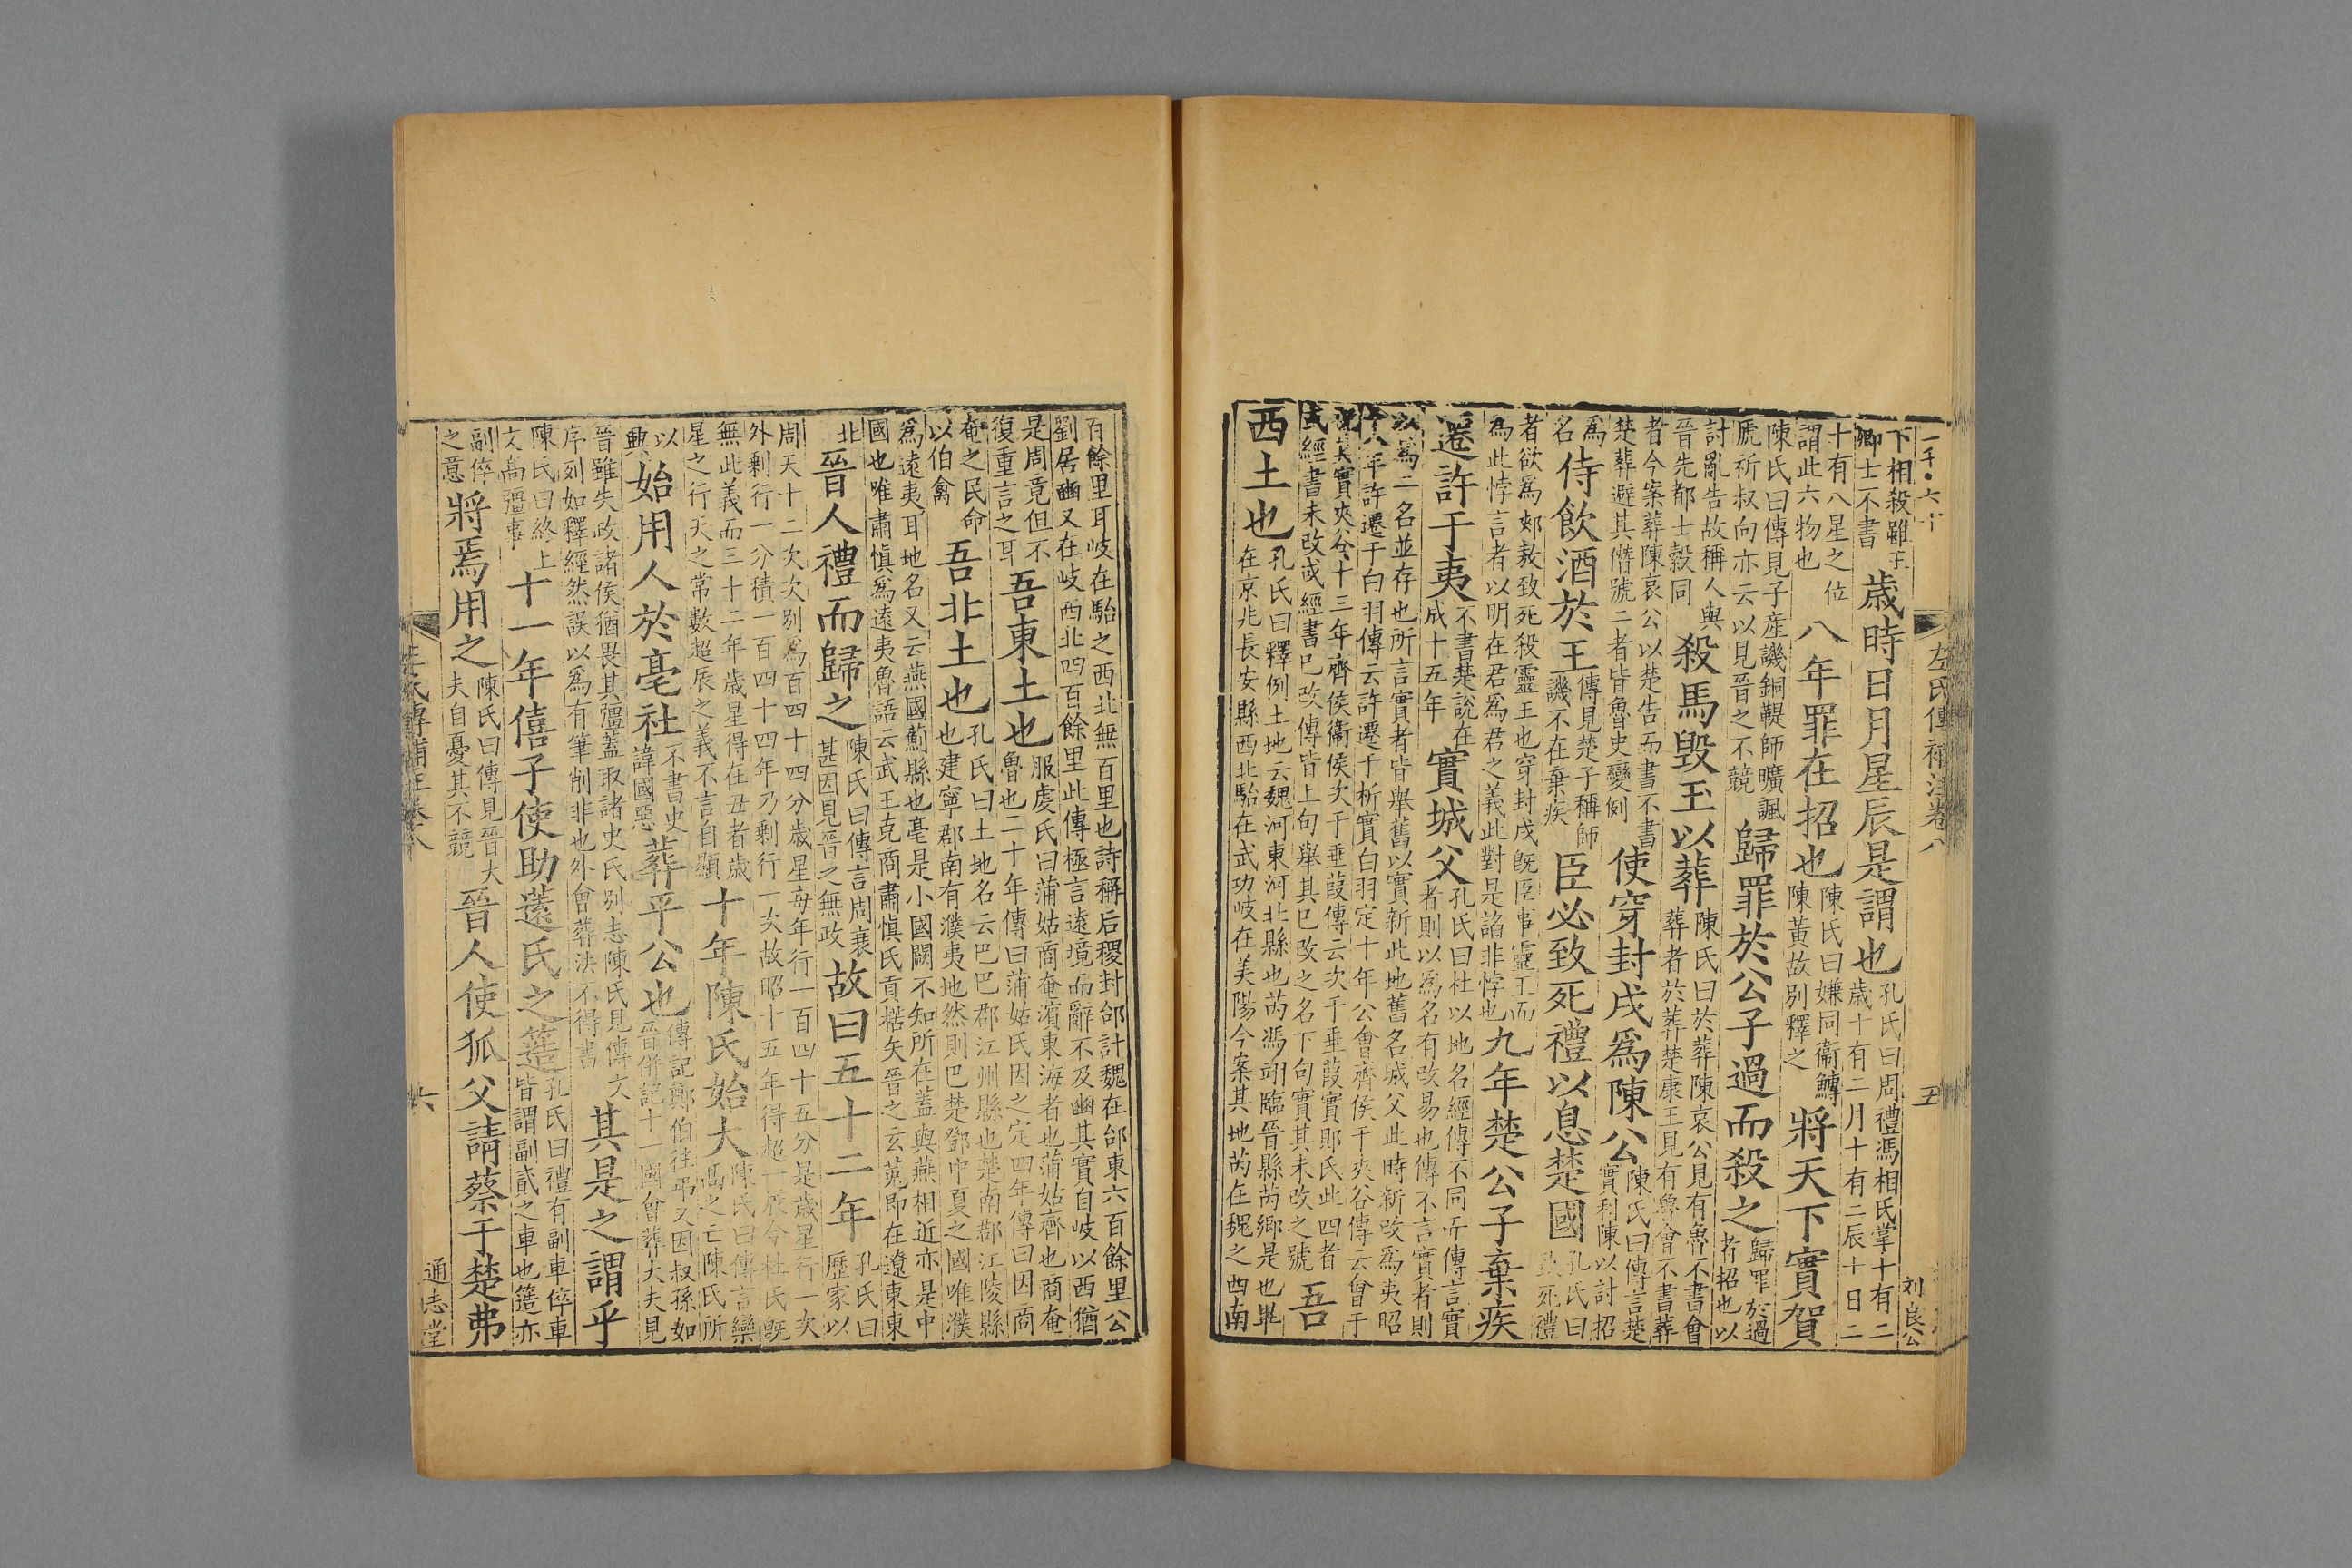 左氏傳補注卷八
五
刘良公
下相殺雖王
卿士不書
歲時日月星辰是謂也
孔氏曰周禮馮相氏掌十有二
歲十有二月十有二辰十日二
十有八星之位
謂此六物也
八年罪在招也
陳氏曰嫌同衞鱄
陳黃故別釋之
將天下實賀
陳氏曰傳見子產譏銅鞮師曠諷
虒祈叔向亦云以見晉之不競
歸罪於公子過而殺之
歸罪於過
者招也以
討亂告故稱人與
晉先都士縠同
殺馬毀玉以葬
陳氏曰於葬陳哀公見有魯不書會
葬者於葬楚康王見有魯會不書葬
者今案葬陳哀公以楚告而書不書
楚葬避其僭號二者皆魯史變例
使穿封戌爲陳公
陳氏曰傳言楚
實利陳以討招
爲
名
侍飲酒於王
傳見楚子稱師
譏不在棄疾
臣必致死禮以息楚國
孔氏曰
致死禮
者欲爲郟敖致死殺靈王也穿封戌旣臣事靈王而
爲此悖言者以明在君爲君之義此對是諂非悖也
九年楚公子棄疾
遷許于夷
不書楚說在
成十五年
實城父
孔氏曰杜以地名經傳不同而傳言實
者則以爲名有改易也傳不言實者則
以爲二名並存也所言實者皆舉舊以實新此地舊名城父此時新改爲夷昭
十八年許遷于白羽傳云許遷于析實白羽定十年公會齊侯于夾谷傳云會于
祝其實夾谷十三年齊侯衞侯次于垂葭傳云次于垂葭實郹氏此四者
或經書未改或經書已改傳皆上句舉其已改之名下句實其未改之號
吾
西土也
孔氏曰釋例土地云魏河東河北縣也芮馮翊臨晉縣芮鄉是也畢
在京兆長安縣西北駘在武功岐在美陽今案其地芮在魏之西南
百餘里耳岐在駘之西北無百里也詩稱后稷封邰計魏在邰東六百餘里公
劉居豳又在岐西北四百餘里此傳極言遠境而辭不及豳其實自岐以西猶
是周竟但不
復重言之耳
吾東土也
服虔氏曰蒲姑商奄濱東海者也蒲姑齊也商奄
魯也二十年傳曰蒲姑氏因之定四年傳曰因商
奄之民命
以伯禽
吾非土也
孔氏曰土地名云巴巴郡江州縣也楚南郡江陵縣
也建寧郡南有濮夷地然則巴楚鄧中夏之國唯濮
爲遠夷耳地名又云燕國薊縣也亳是小國闕不知所在蓋與燕相近亦是中
國也唯肅愼爲遠夷魯語云武王克商肅愼氏貢楛矢晉之玄菟即在遼東東
北
晉人禮而歸之
陳氏曰傳言周衰
甚因見晉之無政
故曰五十二年
孔氏曰
歷家以
周天十二次次別爲百四十四分歲星每年行一百四十五分是歲星行一次
外剩行一分積一百四十四年乃剩行一次故昭十五年得超一辰今杜氏旣
無此義而三十二年歲星得在丑者歲
星之行天之常數超辰之義不言自顯
十年陳氏始大
陳氏曰傳言欒
高之亡陳氏所
以
興
始用人於亳社
不書史
諱國惡
葬平公也
傳記鄭伯往弔又因叔孫如
晉倂記十一國會葬大夫見
晉雖失政諸侯猶畏其彊蓋取諸史氏別志陳氏見傳文
序列如釋經然誤以爲有筆削非也外會葬法不得書
其是之謂乎
陳氏曰終上
文高彊事
十一年僖子使助薳氏之簉
孔氏曰禮有副車倅車
皆謂副貳之車也簉亦
副倅
之意
將焉用之
陳氏曰傳見晉大
夫自憂其不競
晉人使狐父請蔡于楚弗
左氏傳補注卷八
六
通志堂